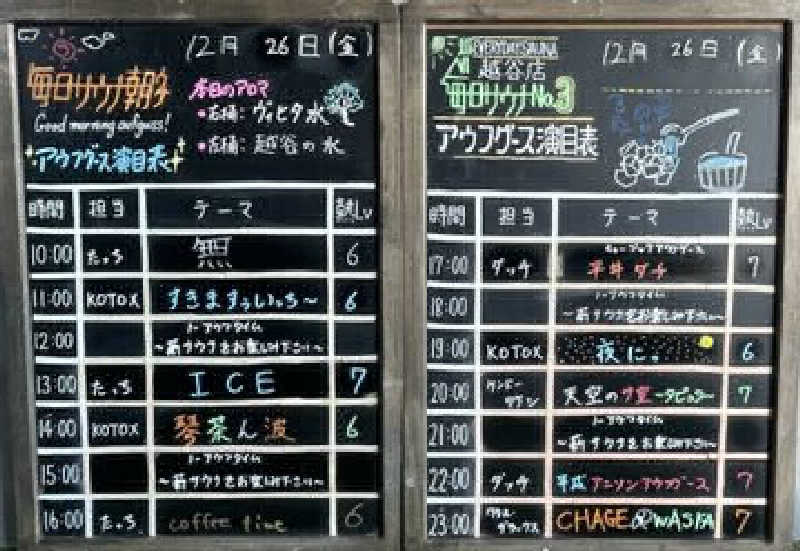 12月 26日(金)
毎日サウナ朝
Good morning aufguss!
アウフグース演目表
本日のアロマ
・右桶: ヴィヒタ水
・左桶: 越谷の水
時間 担当 テーマ 熱Lv
10:00 たっち 無 6
11:00 KOTOX すきますぅいっち〜 6
12:00 ノーアウフタイム
〜薪サウナをお楽しみ下さい〜
13:00 たっち ICE 7
14:00 KOTOX 琴茶ん波 6
15:00 ノーアウフタイム
〜薪サウナをお楽しみ下さい〜
16:00 たっち coffee time 6
12月 26日(金)
EVERYDAY SAUNA
越谷店
毎日サウナNo.3
アウフグース演目表
時間 担当 テーマ 熱Lv
17:00 ダッチ 平井ダチ 7
18:00 ノーアウフタイム
〜薪サウナをお楽しみ下さい〜
19:00 KOTOX 夜に。 6
20:00 天空の 7
21:00 ノーアウフタイム
〜薪サウナをお楽しみ下さい〜
22:00 ダッチ 平成アニソンアウフグース 7
23:00 CHAGE&WASKA 7